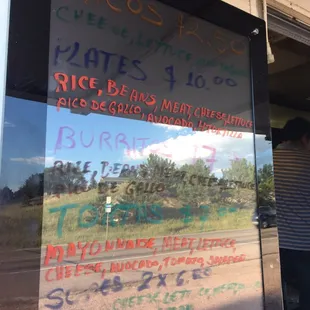 TACOS $2.50
CHEESE, LETTUCE
PLATES $10.00
RICE, BEANS, MEAT, CHEESE, LETTUCE
PICO DE GALLO, AVOCADO,
BURRITOS $7
RICE, BEANS, MEAT, CHEESE, LETTUCE
PICO DE GALLO
TORTAS
MAYONNAISE, MEAT, LETTUCE,
CHEESE, AVOCADO, TOMATO,
2 X 6.50
CHEESE, LETT